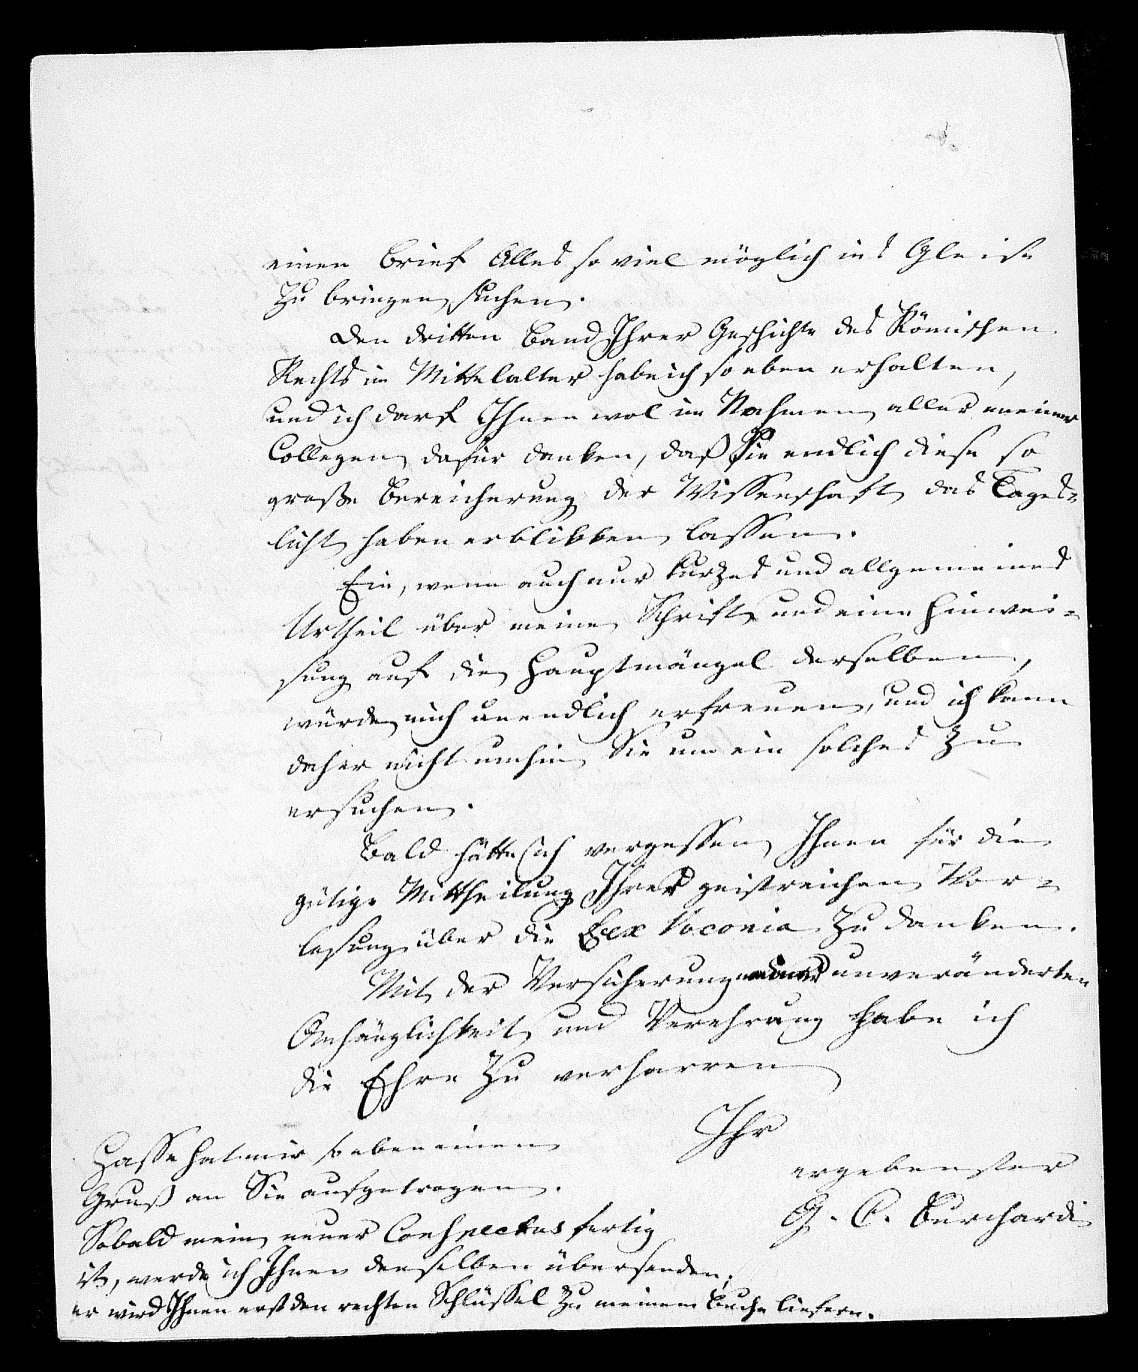 einen Brief Alles so viel möglich ins Gleise
zu bringen suchen.
Den dritten Band Ihrer Geschichte des Römischen
Rechts im Mittelalter habe ich so eben erhalten,
und ich darf Ihnen wol im Nahmen aller meiner
Collegen dafür danken, daß Sie endlich diese so
große Bereicherung der Wissenschaft das Tages-
licht haben erblikken lassen.
Ein, wenn auch nur kurzes und allgemeines
Urtheil über meine Schrift und eine Hinwei-
sung auf die Hauptmängel derselben,
würde mich unendlich erfreuen, und ich kann
daher nicht umhin Sie um ein solches zu
ersuchen.
Bald hätte ich vergessen Ihnen für die
gütige Mittheilung Ihrer geistreichen Vor-
lesung über die Lex Voconia zu danken.
Mit der Versicherung meiner unveränderten
Anhänglichkeit und Verehrung habe ich
die Ehre zu verharren
Ihr
ergebenster
G. C. Burchardi
Hasse hat mir so eben einen
Gruß an Sie aufgetragen.
Sobald mein neuer Conspectus fertig
ist, werde ich Ihnen denselben übersenden;
er wird Ihnen erst den rechten Schlüssel zu meinem Buche liefern.